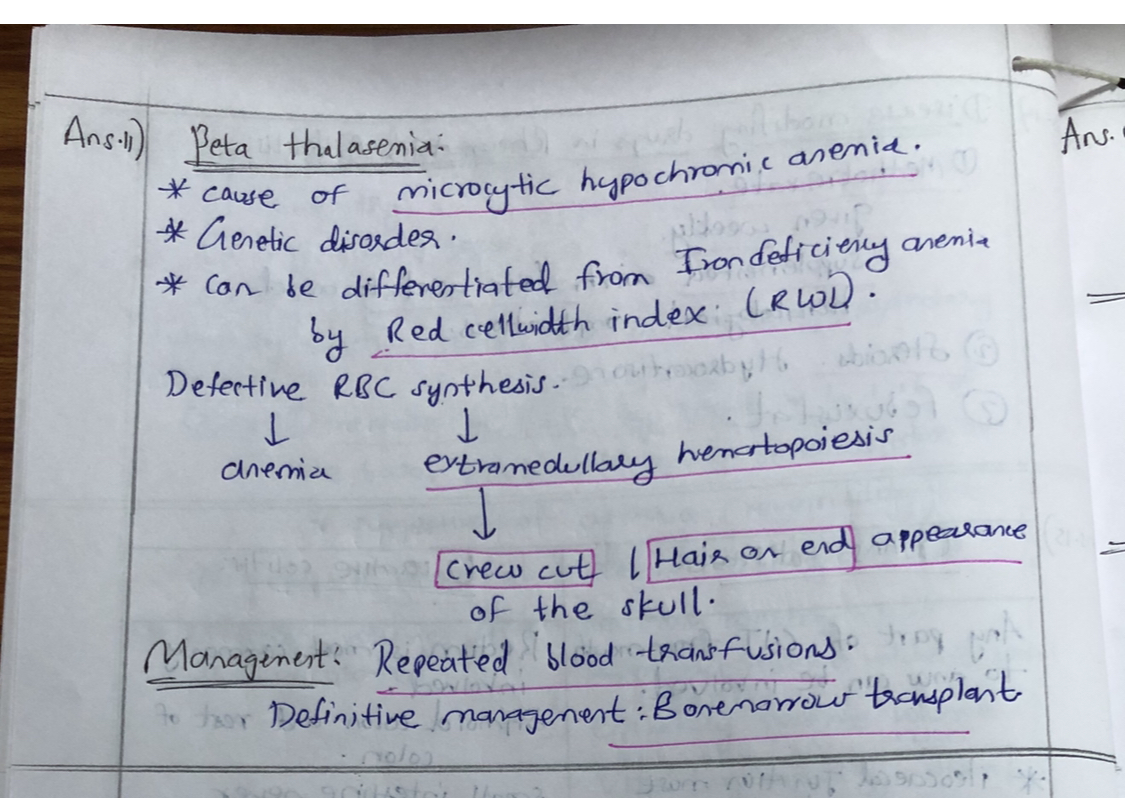 Ans.11) Beta thalasemia:
* cause of microcytic hypochromic anemia.
* Genetic disorder.
* Can be differentiated from Iron deficiency anemia
by Red cell width index. (RWI).
Defective RBC synthesis.
↓ ↓
anemia extramedullary hematopoiesis
↓
Crew cut / Hair on end appearance
of the skull.
Management: Repeated blood transfusions.
Definitive management: Bonemarrow transplant
Ans.